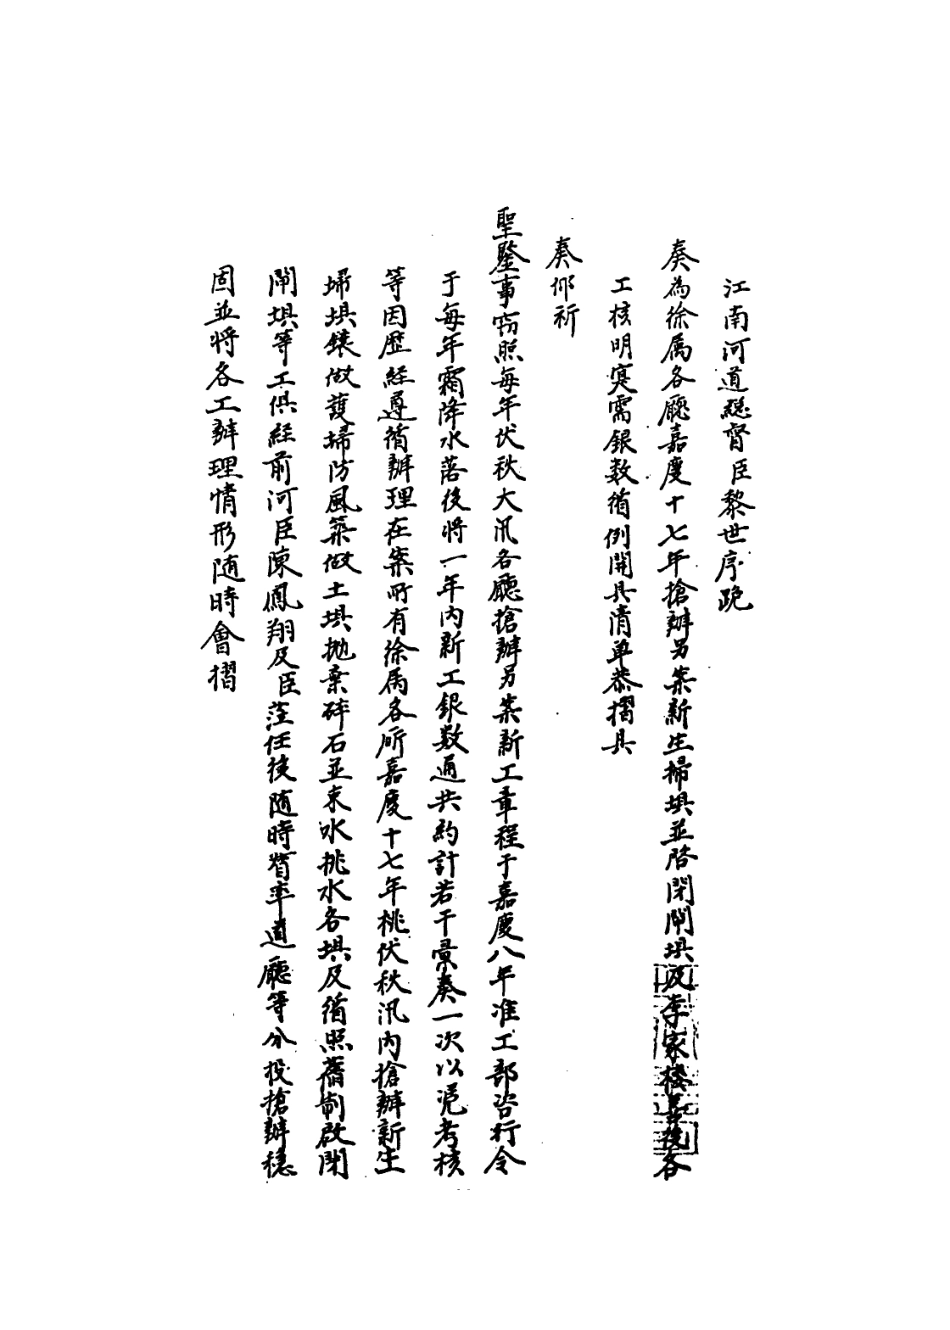 江南河道總督臣黎世序跪
奏為徐属各廳嘉慶十七年搶辦另案新生掃埧並啓閉閘埧及李家楼善後各
工核明寔需銀数循例開具清单恭摺具
奏仰祈
聖鑒事窃照每年伏秋大汛各廳搶辦另案新工章程于嘉慶八年准工部咨行令
于每年霜降水落後将一年内新工銀数通共約計若干彙奏一次以凭考核
等因歷経遵循辦理在案所有徐属各所嘉慶十七年桃伏秋汛内搶辦新生
埽埧鑲做護埽防風築做土埧抛棄碎石並束水挑水各埧及循照舊制啟閉
閘埧等工俱経前河臣陳鳳翔及臣莅任後随時督率道廳等分投搶辦穏
固並将各工辦理情形随時會摺